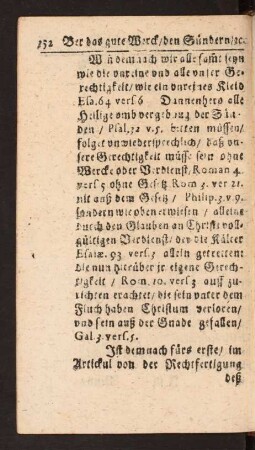 152 Wer das gute Werck/den Sündern/ꝛc.
Wün dem nach wir alle samt seyn
wie die unreine und alle unser Ge-
rechtigkeit/ wie ein unreines Kleid
Esa. 64 vers 6 Dannenhero alle
Heilige umb vergebung der Sün-
den / Psal. 32 v. 5. bitten müssen/
folget unwiedersprechlich/ daß un-
sere Gerechtigkeit müsse seyn ohne
Wercke oder Verdienst, Roman 4.
vers 5 ohne Gesetz Rom 3. ver 21.
nit auß dem Gesetz / Philip. 3. v 9.
sondern wie oben erwiesen / allein
durch den Glauben an Christi voll-
gültigen Verdienst/ der die Kälter
Esaiæ. 93 vers / allein getretten
die nun hierüber jr eigene Gerech-
tigkeit / Rom. 10. vers 3 auff zu-
richten erachtet/ die sein unter dem
Fluch haben Christum verloren/
und sein auß der Gnade gefallen/
Gal 3. vers. 5.
Ist demnach fürs erste/ im
Artickul von der Rechtfertigung
deß